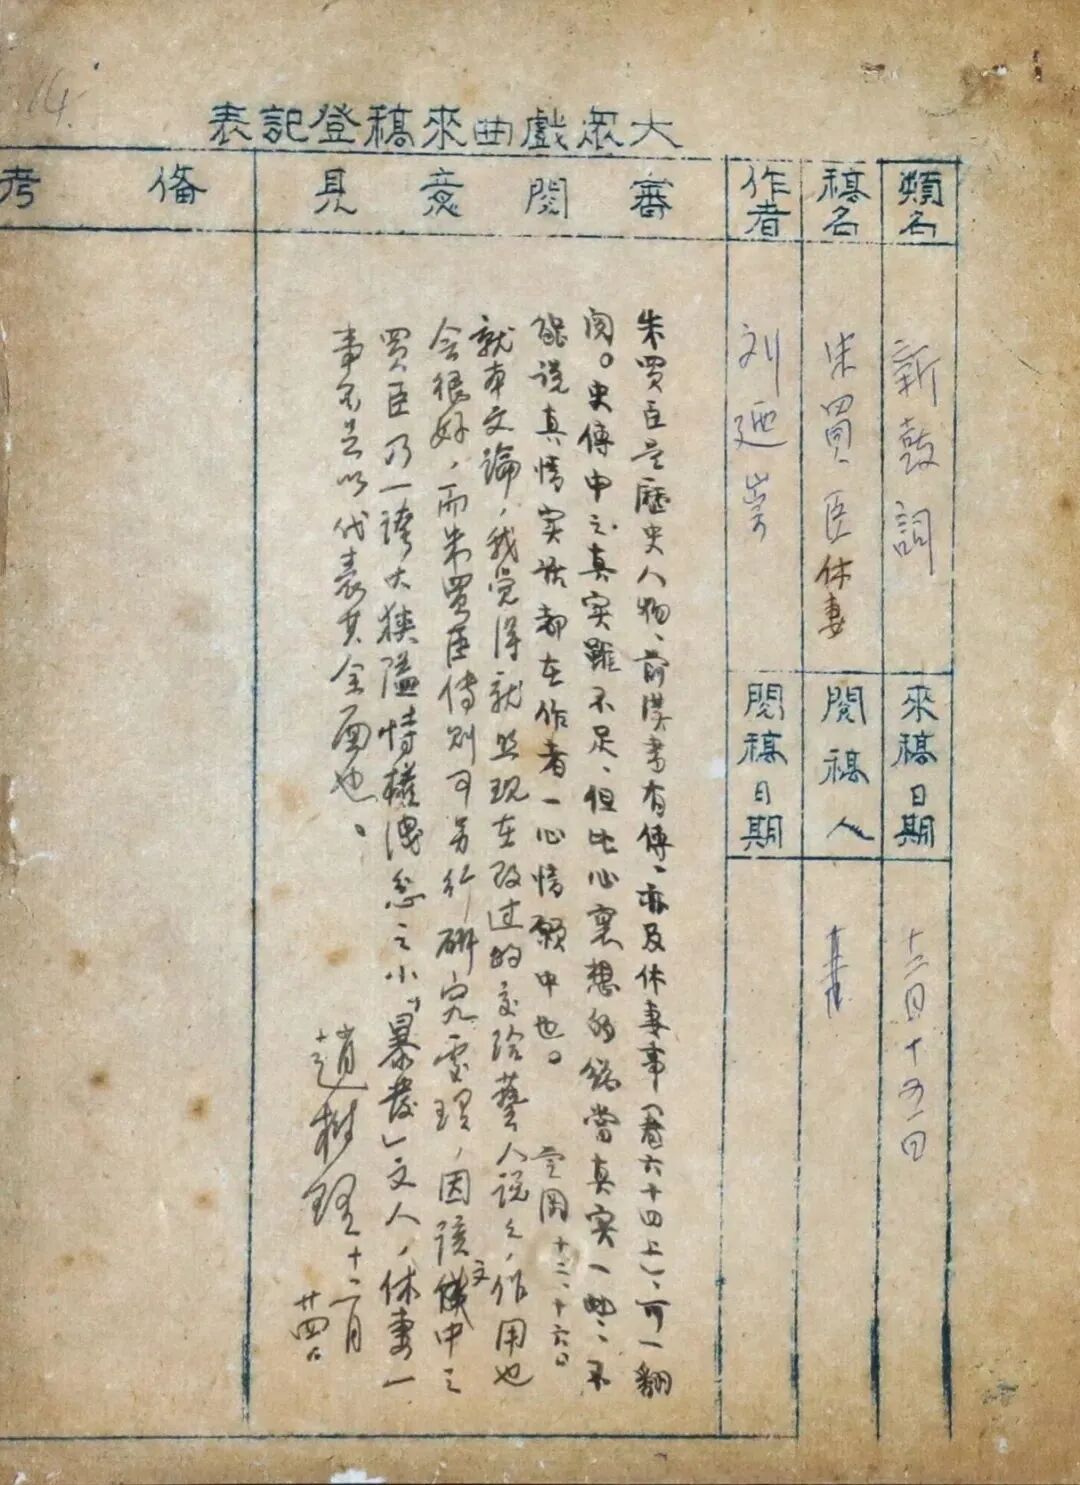 14.
大衆戲曲來稿登記表
類名
新鼓詞
來稿日期
十二月十五日
稿名
朱買臣休妻
閱稿人
作者
刘廼崇
閱稿日期
審閱意見
朱買臣是歷史人物、前漢書有傳、亦及休妻事(卷六十四上)、可一翻
閱。史傳中之真实雖不足、但比心裏想的編當真实一些、不
能說真情实話都在作者一心情願中也。
十二、十六。
就本文論，我覚得就照現在改过的交给藝人說々，作用也
会很好，而朱買臣傳則可另行研究處理，因該文中之
買臣乃一誇大狹隘恃權洩忿之小「暴發」文人，休妻一
事不足以代表其全面也。
趙樹理 十二月
廿四日
備考